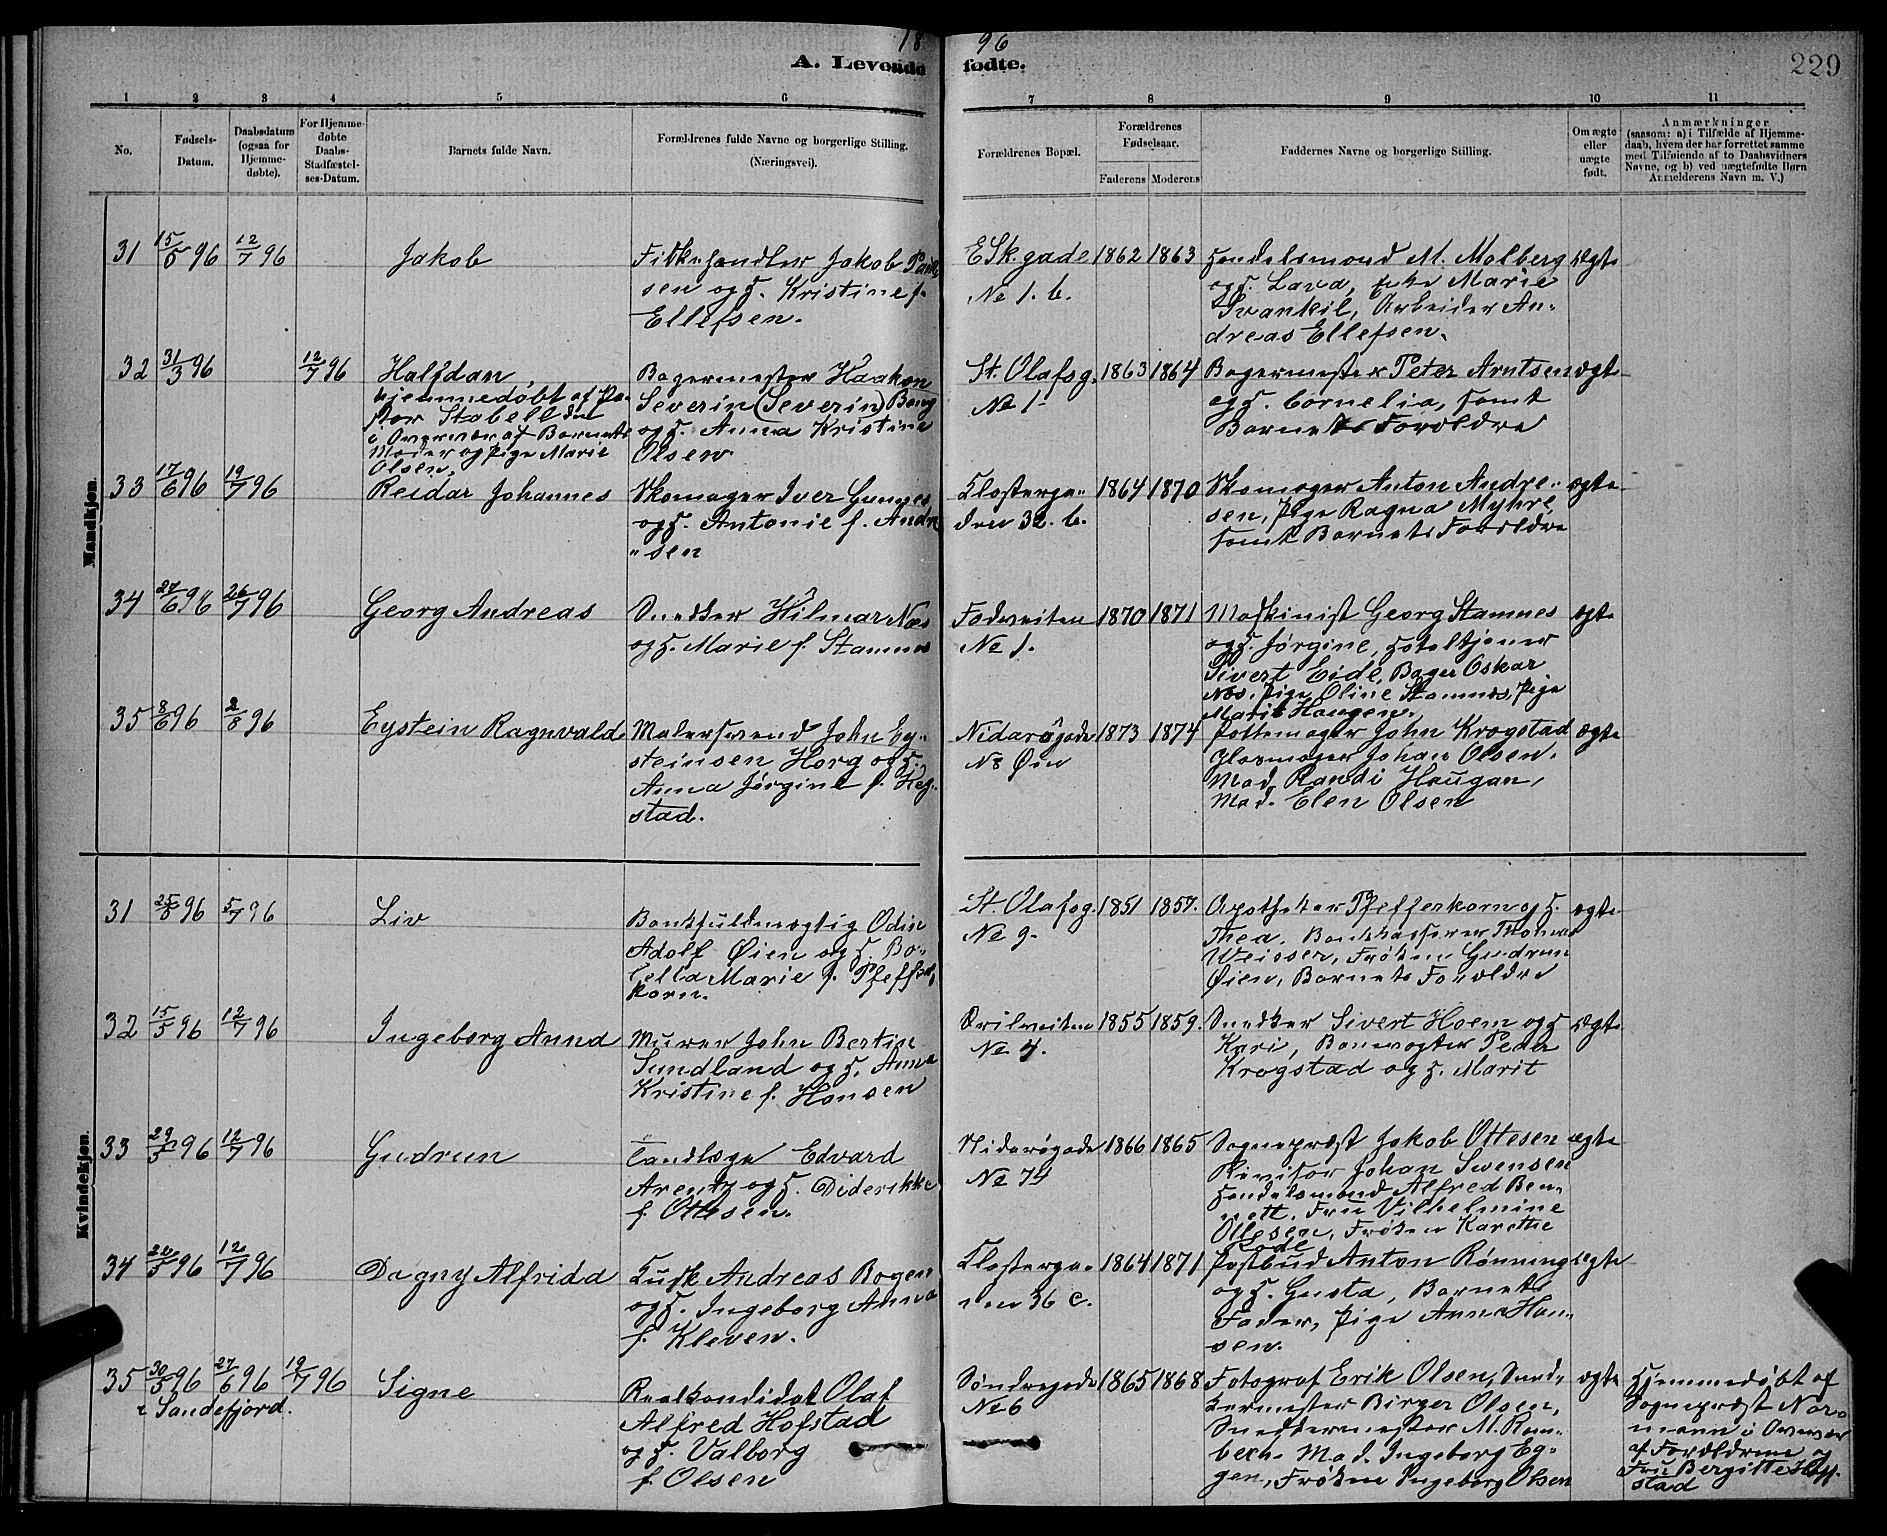 18 96
A. Levende fødte.
229
1 2 3 4 5 6 7 8 9 10 11
No.
Fødsels-
Datum.
Daabsdatum
(ogsaa for
Hjemme-
døbte).
For Hjemme-
døbte
Daabs-
Stadfæstel-
ses-Datum.
Barnets fulde Navn.
Forældrenes fulde Navne og borgerlige Stilling.
(Næringsvei).
Forældrenes Bopæl.
Forældrenes
Fødselsaar.
Faderens Moderens
Faddernes Navne og borgerlige Stilling.
Om ægte
eller
uægte
født.
Anmærkninger
(saasom: a) i Tilfælde af Hjemme-
daab, hvem der har forrettet samme
med Tilføiende af to Daabsvidners
Navne, og b) ved uægtefødte Børn
Anmelderens Navn m. V.)
Mandkjøn.
31 15/5 96 12/7 96
Jakob
Fiskehandler Jakob
sen og H. Kristine f.
Ellefsen.
E Sk. gade
No 1. b.
1862 1863
Handelsmand M. Molberg
og H. Lava, Enke Marie
Svankil, Arbeider An-
dreas Ellefsen.
ægte
32 31/3 96 12/7 96
Halfdan
hjemmedøbt af Pa-
stor Stabell
i Overvær af Barnets
Moder og Pige Marie
Olsen.
Bagermester Haakon
Severin (Severin) Bang
og H. Anna Kristine
Olsen.
St. Olafsg.
No 1.
1863 1864
Bagermester Peter Arntsen
og H. Cornelia, samt
Barnets Forældre
ægte
33 17/6 96 19/7 96
Reidar Johannes
Skomager Iver Gunnes
og H. Antonie f. Andre
"sen
Klosterga-
den 32. b.
1864 1870
Skomager Anton Andre-
sen, Pige Ragna Myhre
samt Barnets Forældre
ægte
34 27/6 96 26/7 96
Georg Andreas
Snedker Hilmar Næs
og H. Marie f. Stamnes
Fodveiten
No 1.
1870 1871
Maskinist Georg Stamnes
og H. Jørgine, Hoteltjener
Sivert Eide, Bager Oskar
Næs, Pige Oline Stamnes, Pige
Marit Haugen.
ægte
35 8/6 96 2/8 96
Eystein Ragnvald
Malersvend John Ey-
steinsen Horg og H.
Anna Jørgine f. Krog-
stad.
Nidarøgade
No Øen
1873 1874
Pottemager John Krogstad
Glasmager Johan Olsen.
Mad. Randi Haugan,
Mad. Elen Olsen
ægte
Kvindekjøn.
31 25/5 96 5/7 96
Liv
Bankfuldmægtig Odin
Adolf Øien og H. Bo-
lella Marie f. Pfeffer-
korn.
St. Olafsg.
No 9.
1851 1857.
Apotheker Pfefferkorn og H.
Thea. Bankkasserer Thomas
Weisser, Frøken Gudrun
Øien, Barnets Forældre
ægte
32 15/5 96 12/7 96
Ingeborg Anna
Murer John Bertin
Sundland og H. Anna
Kristine f. Hansen
No 4.
1855 1859.
Snedker Sivert Hoem og H
Kari, Banevogter Peder
Krogstad og H. Marit
ægte
33 29/5 96 12/7 96
Gudrun
Tandlæge Edvard
Arentz og H. Diderikke
f. Ottesen.
Nidarøgade
No 74
1866 1865
Sogneprest Jakob Ottesen
Revisor Johan Svensen
Handelsmand Alfred Ben-
nett. Fru Vilhelmine
Ottesen, Frøken Karethe
Rode
ægte
34 22/5 96 12/7 96
Dagny Alfrida
Kusk Andreas Bogen
og H. Ingeborg Anna
f. Kleven.
Klosterga-
den 36 c.
1864 1871
Postbud Anton Rønning
og H. Gusta, Barnets
Fader, Pige Anna Han-
sen.
ægte
35 30/5 96 27/6 96 19/7 96
i Sandefjord.
Signe
Realkandidat Olaf
Alfred Hofstad
og H. Valborg
f. Olsen
Søndregade
No 6
1865 1868
Fotograf Erik Olsen, Sned-
kermester Birger Olsen,
Snedkermester M. Ram-
bech. Mad. Ingeborg Eg-
gen, Frøken Ingeborg Olsen
ægte
Hjemmedøbt af
Sogneprest Nor-
mann i Overvær
af Forældrene og
Fru Bergitte Hof-
stad